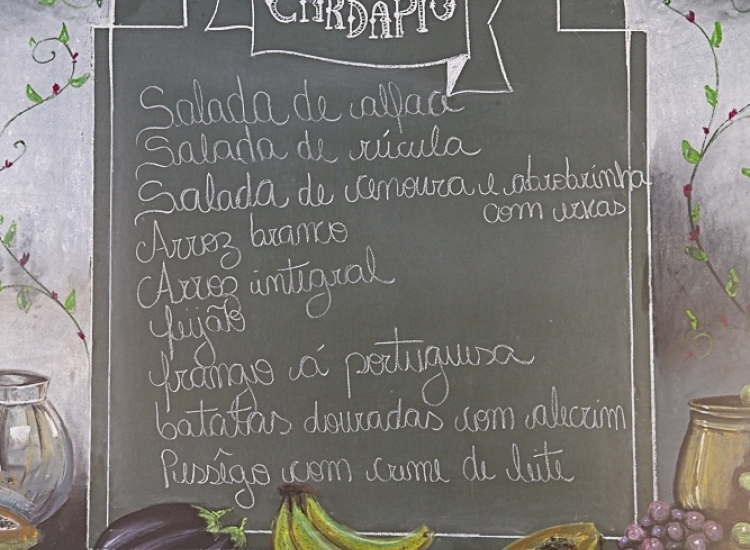 CARDÁPIO
Salada de alface
Salada de rúcula
Salada de cenoura e abrobrinha
com ervas
Arroz branco
Arroz integral
feijão
frango á portuguesa
batatas douradas com alecrim
Pessêgo com creme de leite